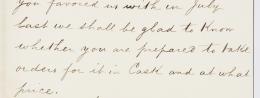 you favored us with in July
last we shall be glad to Know
whether you are prepared to take
orders for it in Cask and at what
price.